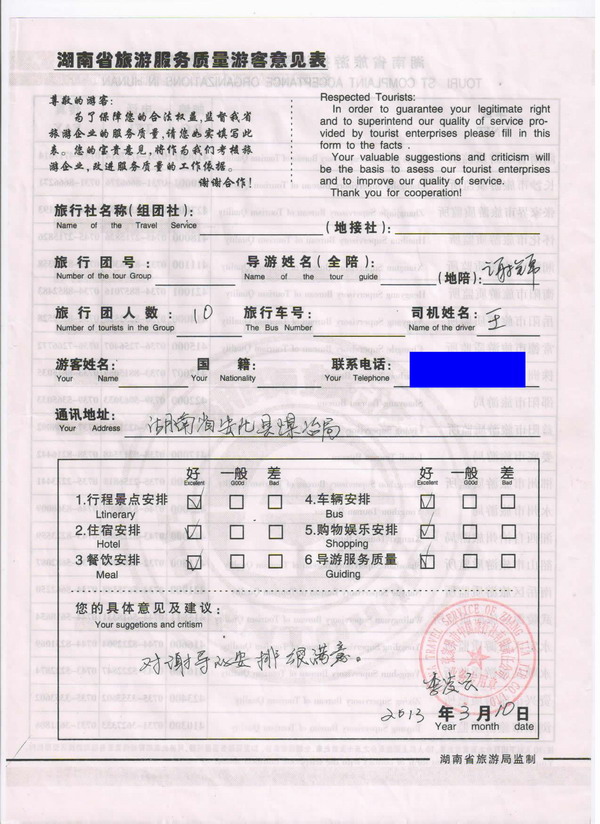 湖南省旅游服务质量游客意见表
尊敬的游客:
为了保障您的合法权益,监督我省
旅游企业的服务质量,请您如实填写此
表。您的宝贵意见,将作为我们考核旅
游企业,改进服务质量的工作依据。
谢谢合作!
Respected Tourists:
In order to guarantee your legitimate right
and to superintend our quality of service pro-
vided by tourist enterprises please fill in this
form to the facts .
Your valuable suggestions and criticism will
be the basis to asess our tourist enterprises
and to improve our quality of service.
Thank you for cooperation!
旅行社名称(组团社): (地接社):
Name of the Travel Service
旅行团号: 导游姓名(全陪) (地陪):
Number of the tour Group Name of the tour guide
旅行团人数: 10 旅行车号: 司机姓名: 王
Number of tourists in the Group The Bus Number Name of the driver
游客姓名: 国籍: 联系电话:
Your Name Your Nationality Your Telephone
通讯地址: 湖南省安化县煤炭局
Your Address
好 一般 差 好 一般 差
Excellent Good Bad Excellent Good Bad
1.行程景点安排 4.车辆安排
Ltinerary Bus
2.住宿安排 5.购物娱乐安排
Hotel Shopping
3 餐饮安排 6 导游服务质量
Meal Guiding
您的具体意见及建议:
Your suggetions and critism
对谢导的安排很满意。
2013 年 3 月 10 日
Year month date
湖南省旅游局监制